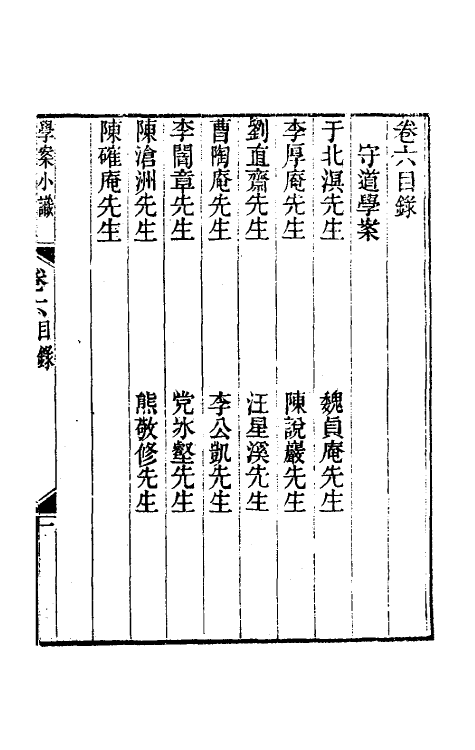 卷六目錄
守道學案
于北溟先生
魏貞庵先生
李厚庵先生
陳說巖先生
劉直齋先生
汪星溪先生
曹陶庵先生
李公凱先生
李闇章先生
党冰壑先生
陳滄洲先生
熊敬修先生
陳確庵先生
學案小識
卷六目錄
一